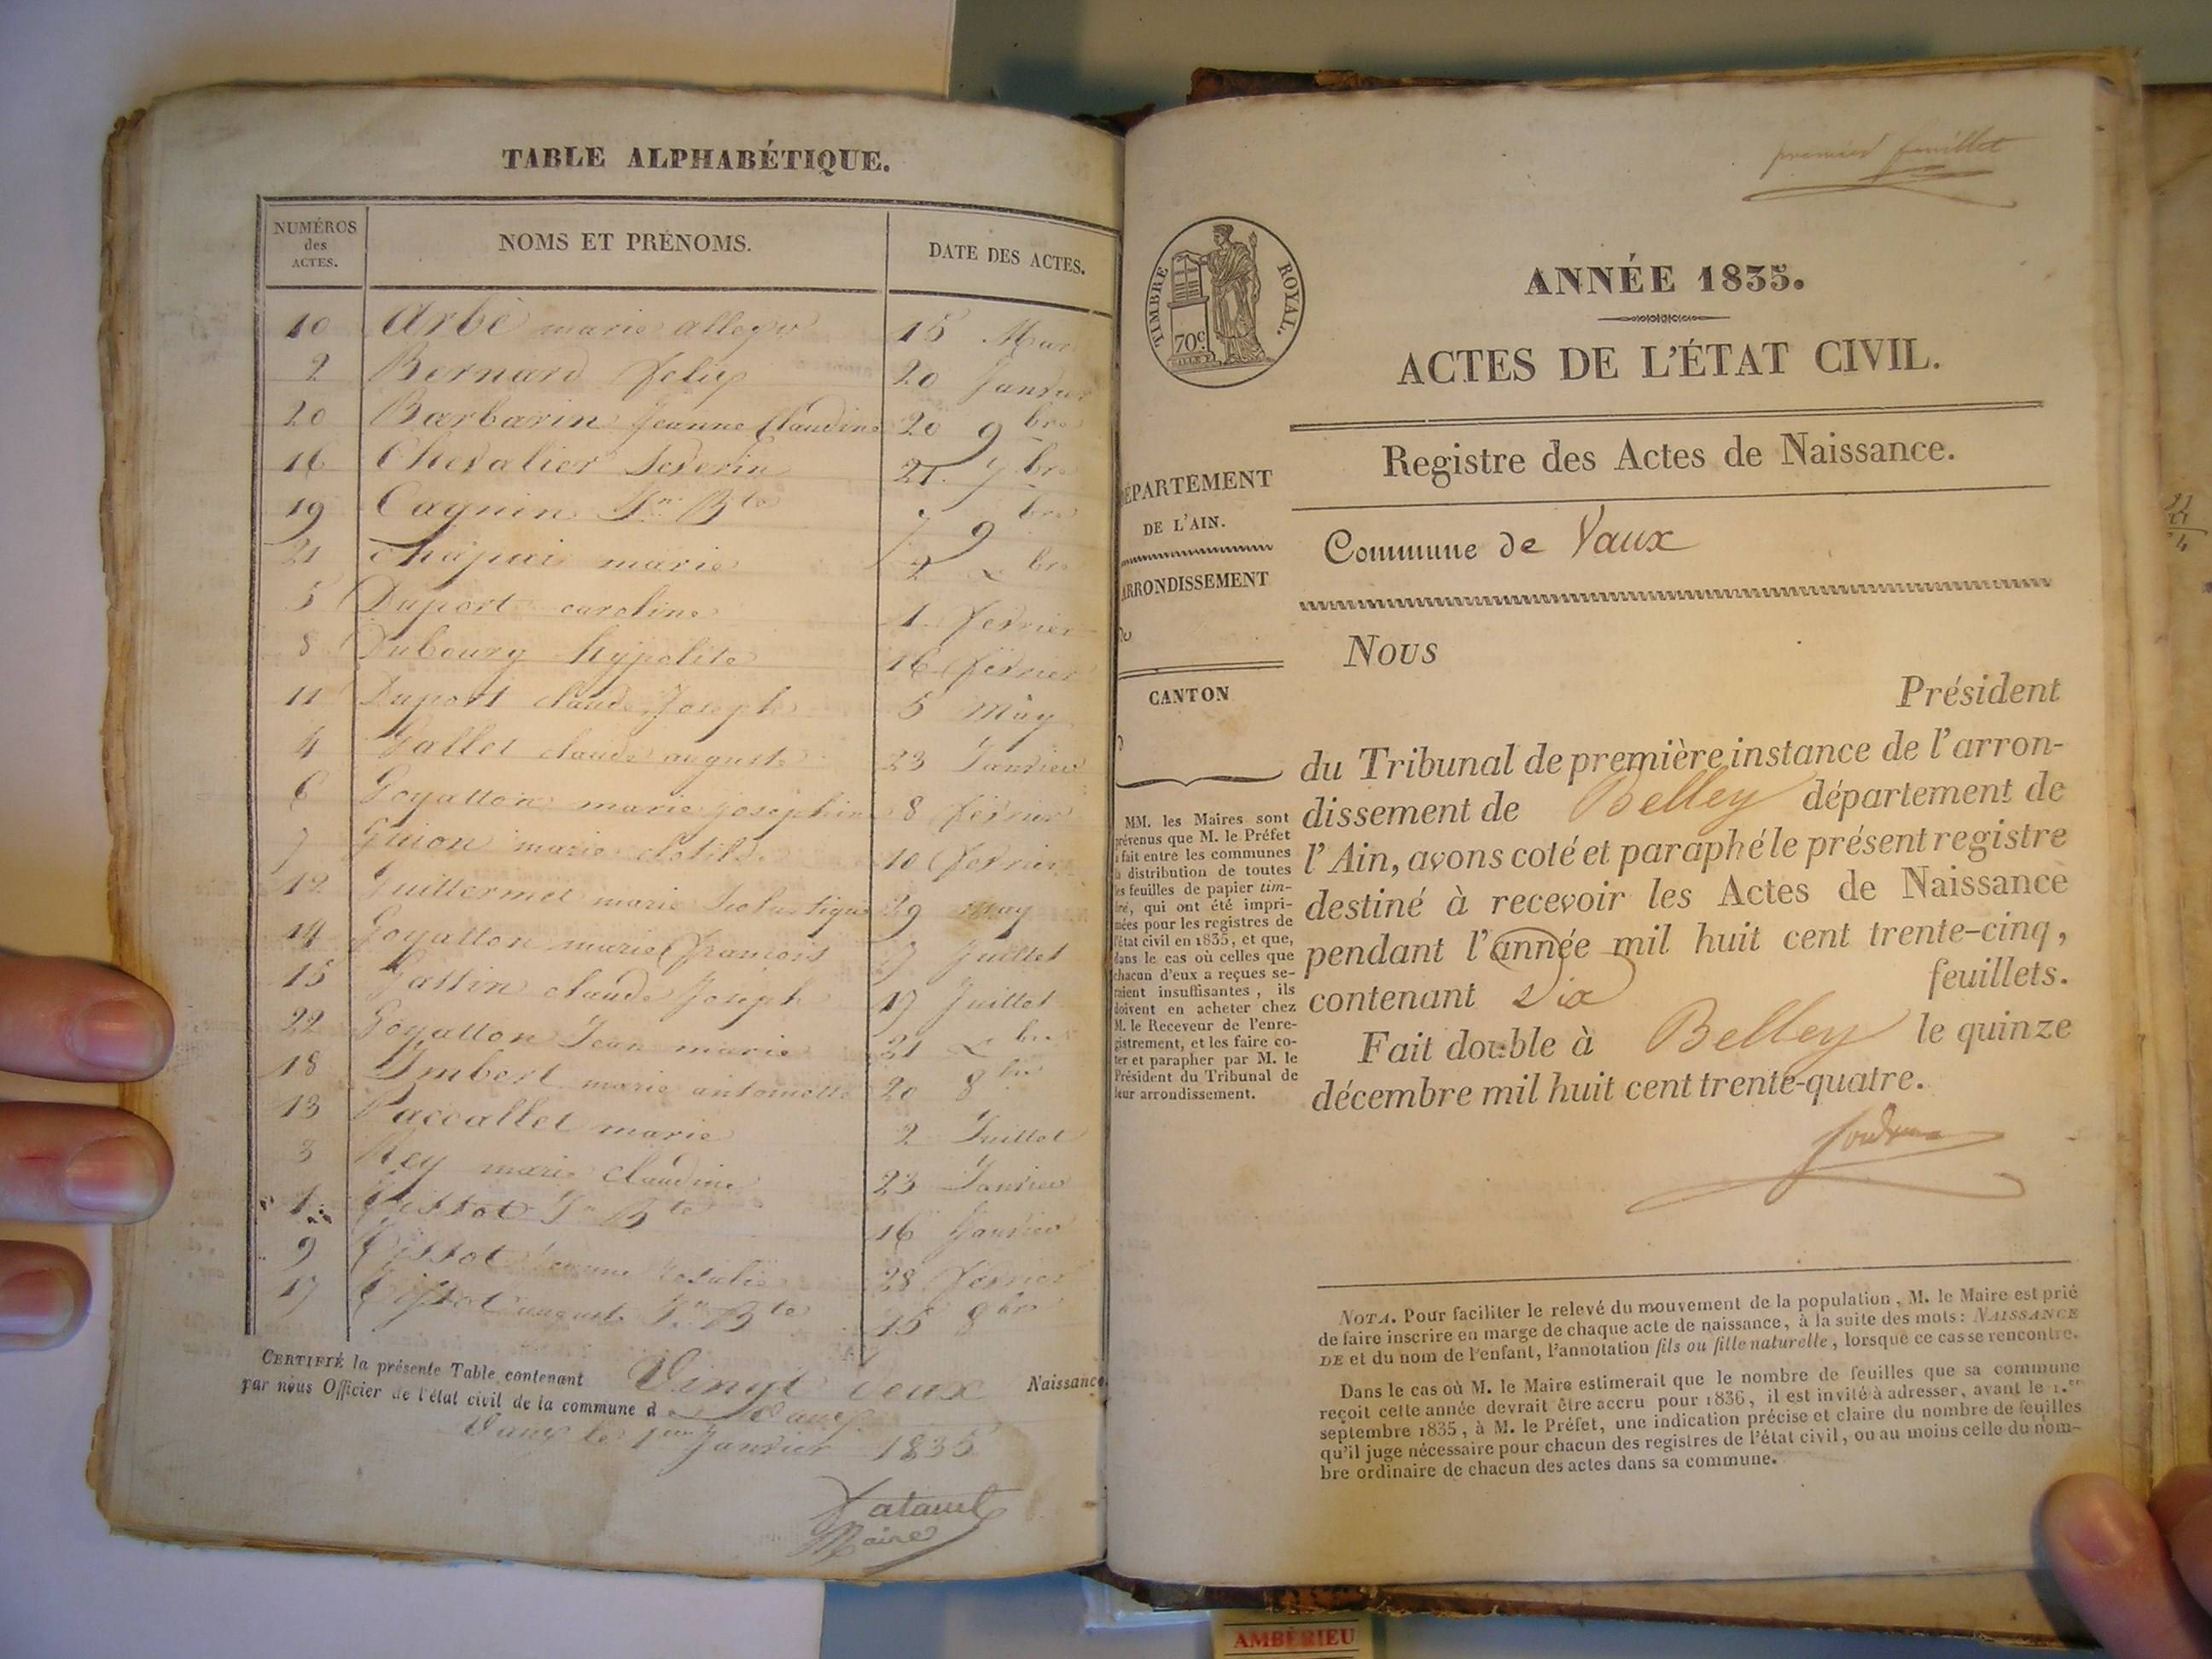 TABLE ALPHABÉTIQUE.
NUMÉROS des ACTES. NOMS ET PRÉNOMS. DATE DES ACTES.
10 Arbé marie 15 Mar
2 Bernard felix 20 Janvier
20 Barbarin Jeanne Claudine 20 9bre
16 Chevalier Severin 21 7bre
19 Cagnin Jn Bte 7 9bre
21 Chapuis marie 2 Xbre
5 Duport caroline 1 fevrier
8 Dubourg hypolite 16 fevrier
11 Duport claude Joseph 5 May
4 Gallet claude auguste 23 Janvier
6 Goyatton marie josephine 8 fevrier
7 Guion marie clotilde 10 fevrier
12 Guillermet marie Scolastique 29 may
14 Goyatton marie françois 7 Juillet
15 Gattin claude Joseph 17 Juillet
22 Goyatton Jean marie 21 Xbre
18 Imbert marie antoinette 20 8bre
13 Paccallet marie 2 Juillet
3 Rey marie claudine 23 Janvier
1 Tissot Jn Bte 16 Janvier
9 Tissot Jeanne Rosalie 28 fevrier
17 Tissot auguste Jn Bte 15 8bre
CERTIFIÉ la présente Table contenant Vingt deux Naissance
par nous Officier de l'état civil de la commune d Vaux
Vaux le 1er Janvier 1835
Maire
premier feuillet
TIMBRE ROYAL.
70c
ANNÉE 1835.
ACTES DE L'ÉTAT CIVIL.
Registre des Actes de Naissance.
DÉPARTEMENT
DE L'AIN.
Commune de Vaux
ARRONDISSEMENT
CANTON
Nous
Président
du Tribunal de première instance de l'arron-
dissement de Belley département de
l'Ain, avons coté et paraphé le présent registre
destiné à recevoir les Actes de Naissance
pendant l'année mil huit cent trente-cinq,
contenant Dix feuillets.
Fait double à Belley le quinze
décembre mil huit cent trente-quatre.
MM. les Maires sont
prévenus que M. le Préfet
a fait entre les communes
la distribution de toutes
les feuilles de papier tim-
bré, qui ont été impri-
mées pour les registres de
l'état civil en 1835, et que,
dans le cas où celles que
chacun d'eux a reçues se-
raient insuffisantes, ils
doivent en acheter chez
M. le Receveur de l'enre-
gistrement, et les faire co-
ter et parapher par M. le
Président du Tribunal de
leur arrondissement.
NOTA. Pour faciliter le relevé du mouvement de la population, M. le Maire est prié
de faire inscrire en marge de chaque acte de naissance, à la suite des mots: NAISSANCE
DE et du nom de l'enfant, l'annotation fils ou fille naturelle, lorsque ce cas se rencontre.
Dans le cas où M. le Maire estimerait que le nombre de feuilles que sa commune
reçoit cette année devrait être accru pour 1836, il est invité à adresser, avant le 1.er
septembre 1835, à M. le Préfet, une indication précise et claire du nombre de feuilles
qu'il juge nécessaire pour chacun des registres de l'état civil, ou au moins celle du nom-
bre ordinaire de chacun des actes dans sa commune.
AMBÉRIEU